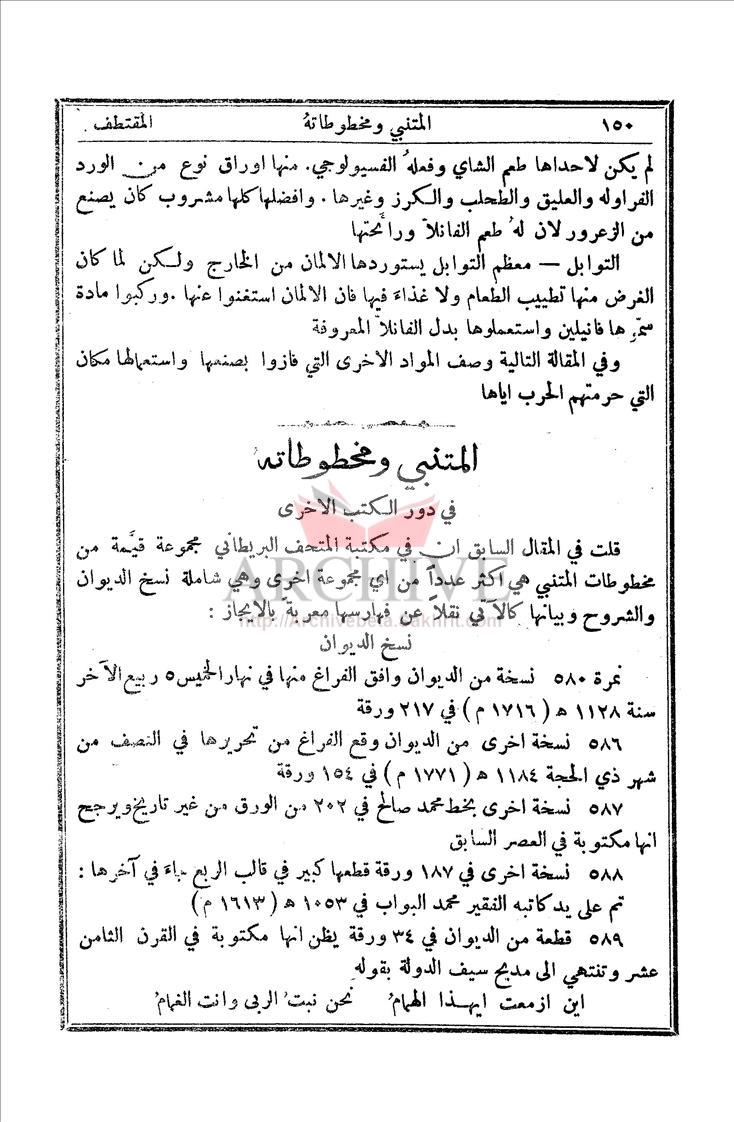 ١٥٠ المتنبي ومخطوطاتهُ المقتطف
لم يكن لاحداها طعم الشاي وفعلهُ الفسيولوجي. منها اوراق نوع من الورد
الفراوله والعليق والطحلب والكرز وغيرها . وافضلها كلها مشروب كان يصنع
من الزعرور لان لهُ طعم الفانلاّ ورائحتها
التوابل — معظم التوابل يستوردها الالمان من الخارج ولكن لما كان
الغرض منها تطييب الطعام ولا غذاءَ فيها فان الالمان استغنوا عنها . وركبوا مادة
سمَّوها فانيلين واستعملوها بدل الفانلاّ المعروفة
وفي المقالة التالية وصف المواد الاخرى التي فازوا بصنعها واستعمالها مكان
التي حرمتهم الحرب اياها
المتنبي ومخطوطاتهُ
في دور الكتب الاخرى
قلت في المقال السابق ان في مكتبة المتحف البريطاني مجموعة قيَّمة من
مخطوطات المتنبي هي اكثر عدداً من اي مجموعة اخرى وهي شاملة نسخ الديوان
والشروح وبيانها كالآتي نقلاً عن فهارسها معربةً بالايجاز :
ARCHIVE
http://Archivebeta.Sakhrit.com
نسخ الديوان
نمرة ٥٨٠ نسخة من الديوان وافق الفراغ منها في نهار الخميس ٥ ربيع الآخر
سنة ١١٢٨ ه ( ١٧١٦ م ) في ٢١٧ ورقة
٥٨٦ نسخة اخرى من الديوان وقع الفراغ من تحريرها في النصف من
شهر ذي الحجة ١١٨٤ ه ( ١٧٧١ م ) في ١٥٤ ورقة
٥٨٧ نسخة اخرى بخط محمد صالح في ٢٠٢ من الورق من غير تاريخ ويرجح
انها مكتوبة في العصر السابق
٥٨٨ نسخة اخرى في ١٨٧ ورقة قطعها كبير في قالب الربع جاءَ في آخرها :
تم على يد كاتبه الفقير محمد البواب في ١٠٥٣ ه ( ١٦١٣ م )
٥٨٩ قطعة من الديوان في ٣٤ ورقة يظن انها مكتوبة في القرن الثامن
عشر وتنتهي الى مديح سيف الدولة بقولهِ
اين ازمعت ايهذا الهمامُ نحن نبتُ الربى وانت الغمامُ